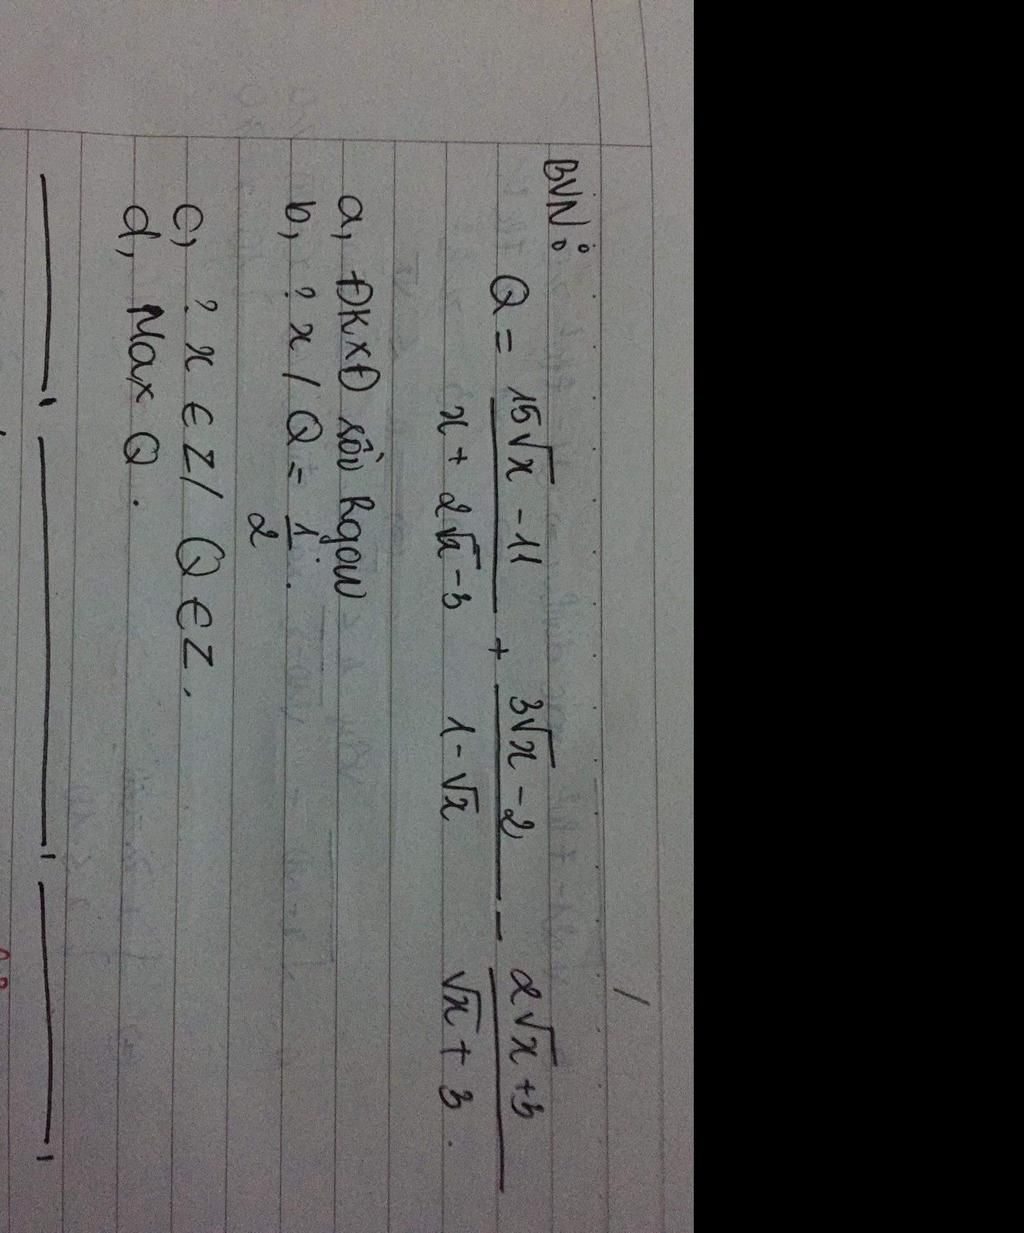 BVN:
Q = \frac{15\sqrt{x} - 11}{x + 2\sqrt{x} - 3} + \frac{3\sqrt{x} - 2}{1 - \sqrt{x}} - \frac{2\sqrt{x} + 3}{\sqrt{x} + 3}.
a, ĐKXĐ rồi Rgọn
b, ? x / Q = \frac{1}{2}.
c, ? x ∈ Z / Q ∈ Z.
d, Max Q.